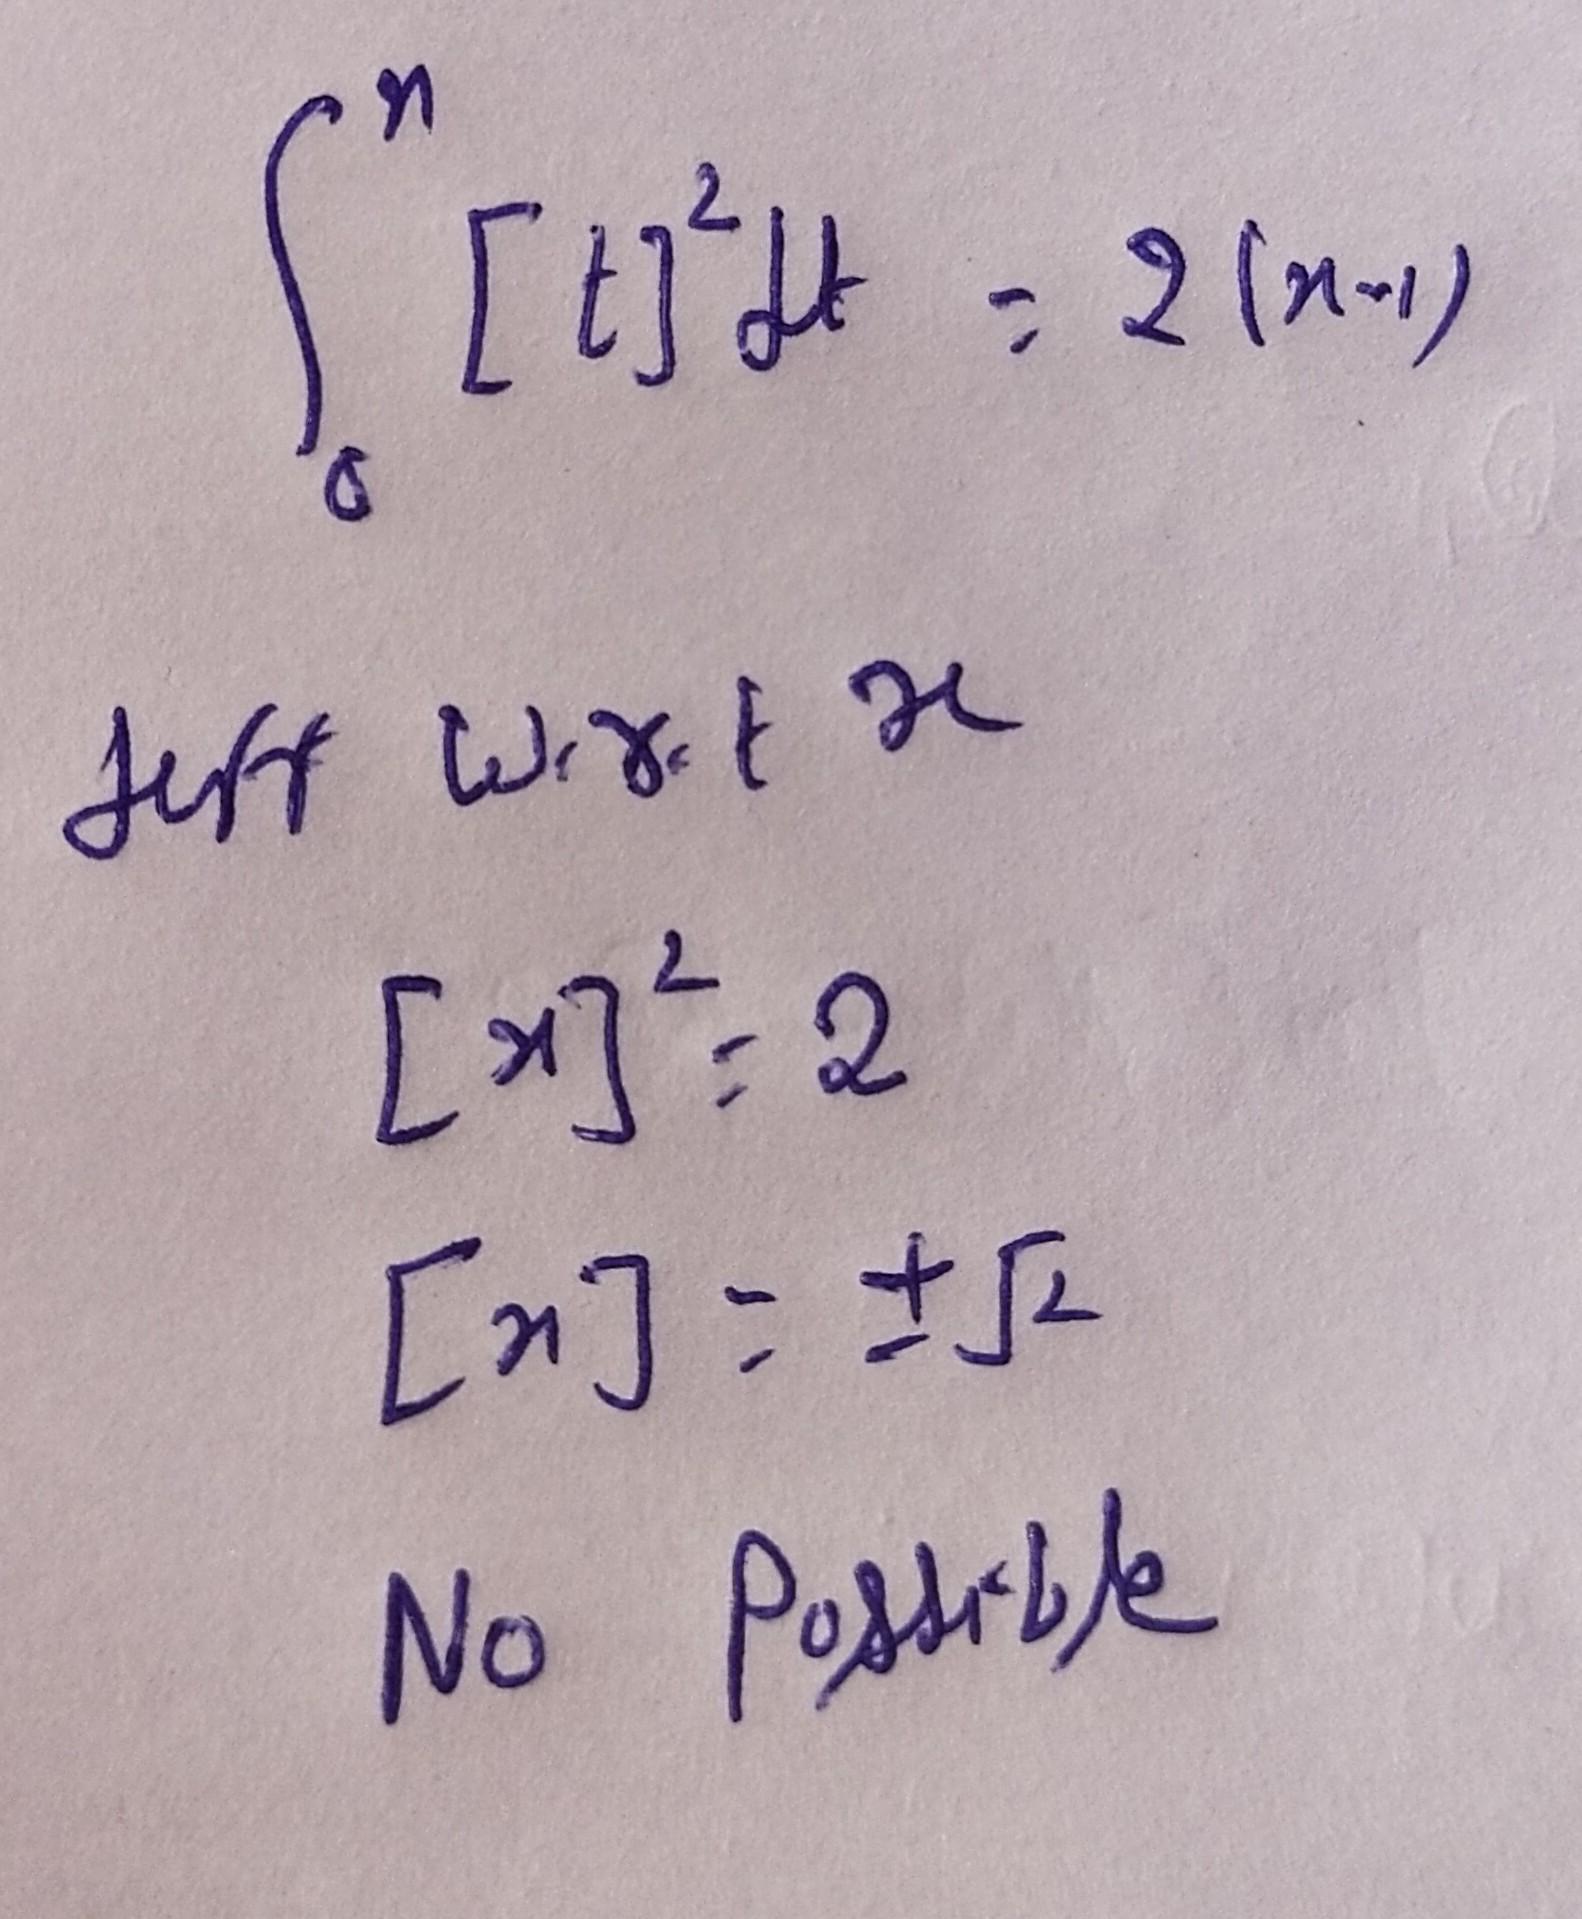 ∫₀ˣ [t]² dt = 2(x-1)
diff w.r.t x
[x]² = 2
[x] = ±√2
No Possible